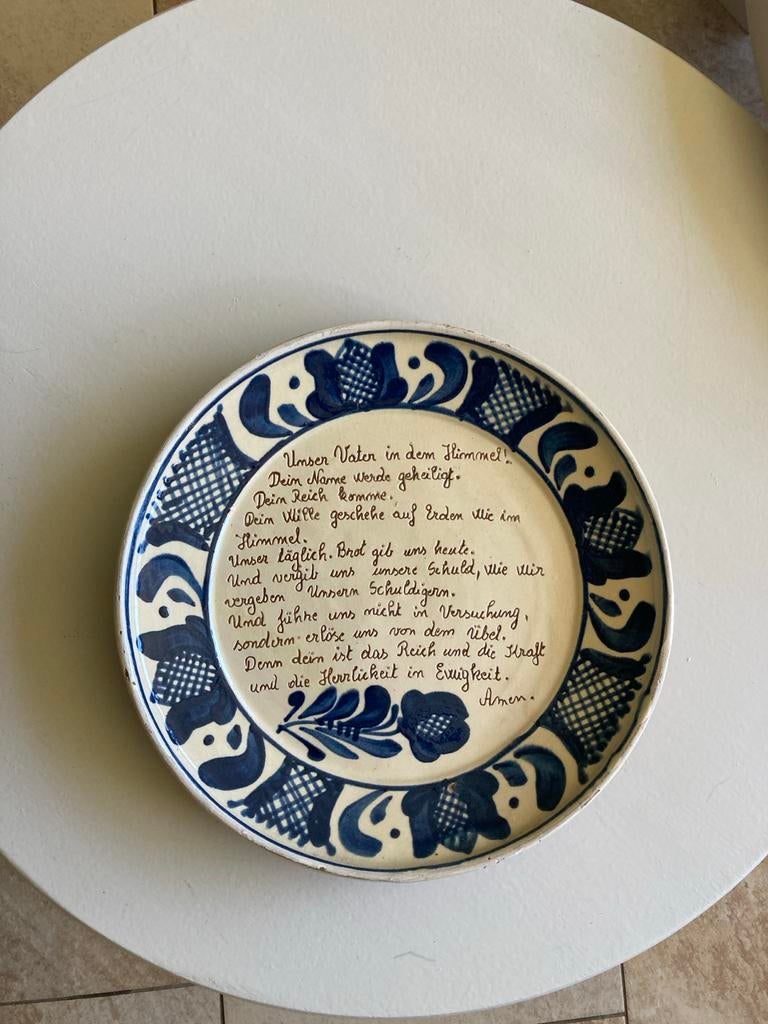 Unser Vater in dem Himmel!
Dein Name werde geheiligt.
Dein Reich komme.
Dein Wille geschehe auf Erden wie im
Himmel.
Unser täglich. Brot gib uns heute.
Und vergib uns unsere Schuld, wie wir
vergeben Unsern Schuldigern.
Und führe uns nicht in Versuchung,
sondern erlöse uns von dem Übel.
Denn dein ist das Reich und die Kraft
und die Herrlichkeit in Ewigkeit.
Amen.